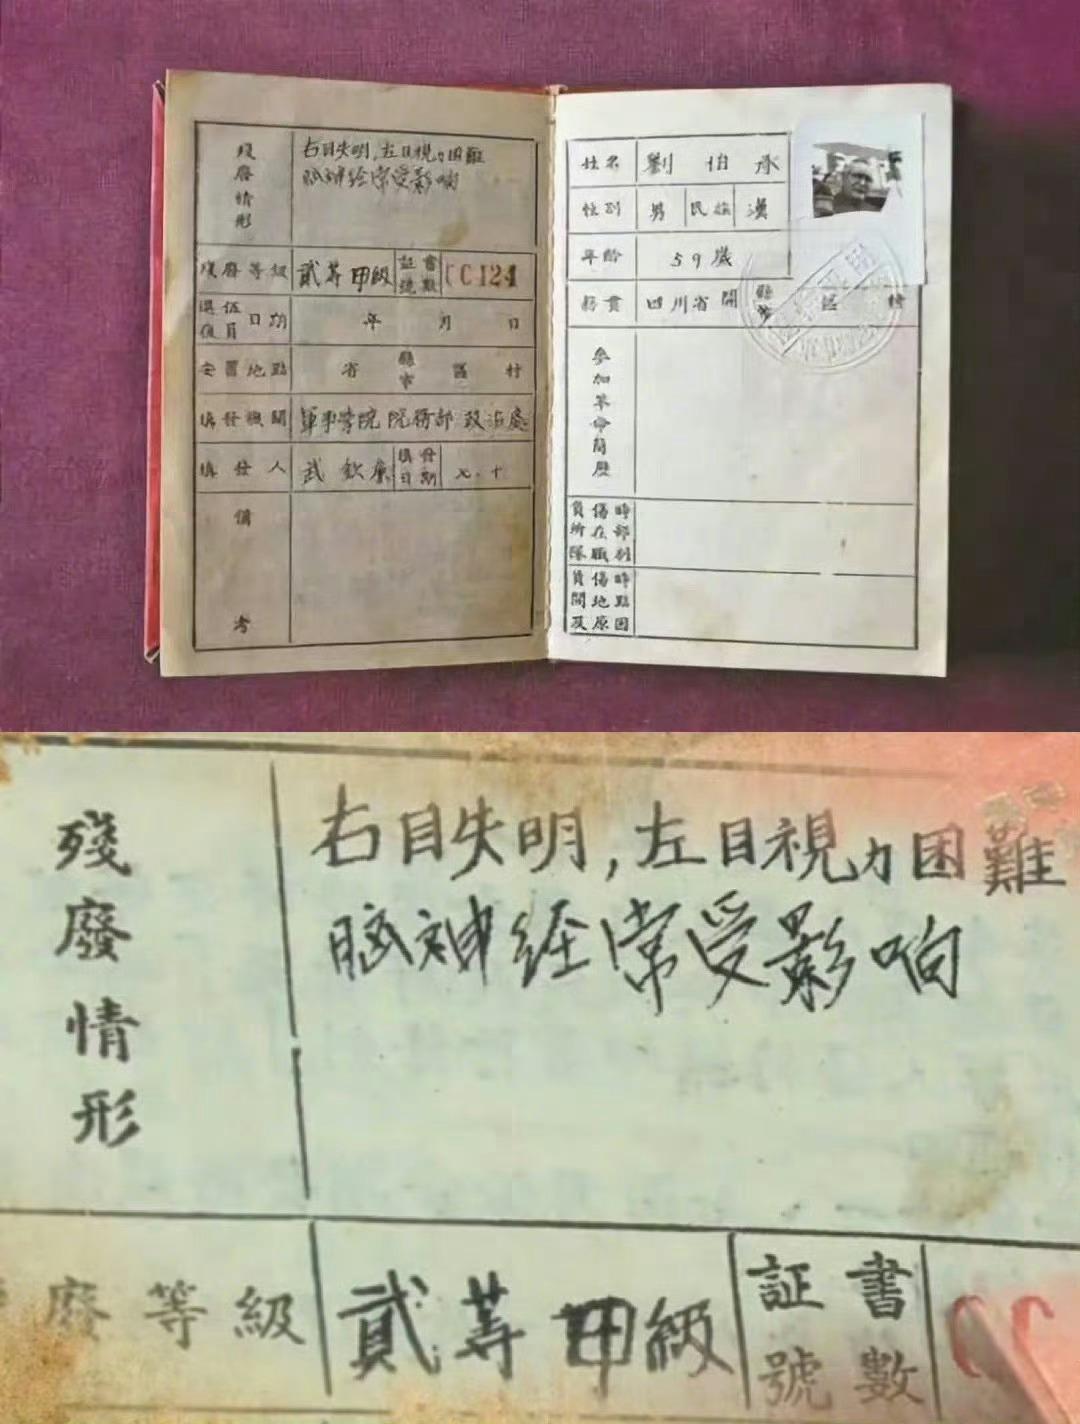 殘廢情形 右目失明,左目視力困難
脑神经常受影响
殘廢等級 貳等甲級 証書號數 CC124
退伍復員日期 年 月 日
安置地點 省 縣市 區 村
填發機關 軍事学院 院務部 政治處
填發人 武 欽 填發日期 七.十
備考
姓名 劉伯承
性别 男 民族 漢
年齡 59歲
籍貫 四川省 開 縣市 區 村
參加革命簡歷
負傷時所在部隊職别
負傷時間地點及原因
殘廢情形
右目失明,左目視力困難
脑神经常受影响
廢等級 貳等甲級 証書號數 CC